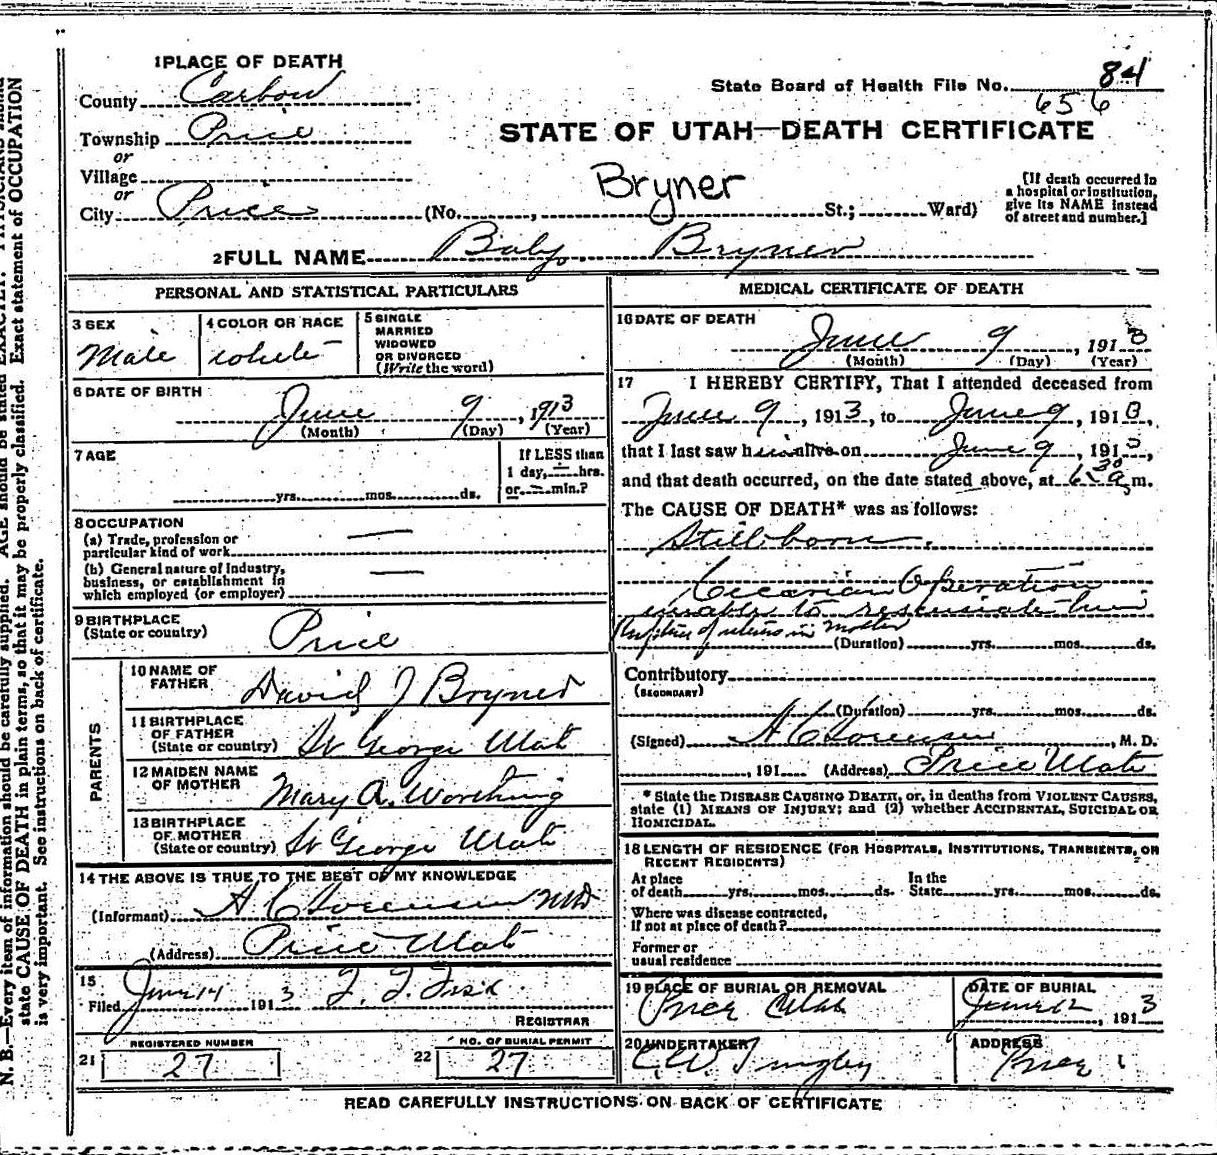 1 PLACE OF DEATH
County Carbon
State Board of Health File No. 84
656
Township Price
or
STATE OF UTAH—DEATH CERTIFICATE
Village
or
Bryner
[If death occurred in
a hospital or institution,
give its NAME instead
of street and number.]
City Price (No. , St.; Ward)
2 FULL NAME Baby Bryner
PERSONAL AND STATISTICAL PARTICULARS
3 SEX
Male
4 COLOR OR RACE
white
5 SINGLE
MARRIED
WIDOWED
OR DIVORCED
(Write the word)
6 DATE OF BIRTH
June 9, 1913
(Month) (Day) (Year)
7 AGE
yrs. mos. ds.
If LESS than
1 day, — hrs.
or — min.?
8 OCCUPATION
(a) Trade, profession or
particular kind of work —
(b) General nature of industry,
business, or establishment in
which employed (or employer) —
9 BIRTHPLACE
(State or country) Price
PARENTS
10 NAME OF
FATHER David J Bryner
11 BIRTHPLACE
OF FATHER
(State or country) St George Utah
12 MAIDEN NAME
OF MOTHER Mary A. Worthing
13 BIRTHPLACE
OF MOTHER
(State or country) St George Utah
14 THE ABOVE IS TRUE TO THE BEST OF MY KNOWLEDGE
(Informant) A C Sorensen MD
(Address) Price Utah
15
Filed June 14 1913 F. F. Fisk
REGISTRAR
REGISTERED NUMBER
21 27
NO. OF BURIAL PERMIT
22 27
MEDICAL CERTIFICATE OF DEATH
16 DATE OF DEATH
June 9, 1913
(Month) (Day) (Year)
17 I HEREBY CERTIFY, That I attended deceased from
June 9, 1913, to June 9, 1913,
that I last saw him alive on June 9, 1913,
and that death occurred, on the date stated above, at 6 30 a m.
The CAUSE OF DEATH* was as follows:
Stillborn.
Cecarian Operation
unable to resusciate him
Rupture of uterus in mother
(Duration) yrs. mos. ds.
Contributory
(SECONDARY)
(Duration) yrs. mos. ds.
(Signed) A C Sorensen, M. D.
, 191 (Address) Price Utah
* State the DISEASE CAUSING DEATH, or, in deaths from VIOLENT CAUSES,
state (1) MEANS OF INJURY; and (2) whether ACCIDENTAL, SUICIDAL OR
HOMICIDAL.
18 LENGTH OF RESIDENCE (FOR HOSPITALS, INSTITUTIONS, TRANSIENTS, OR
RECENT RESIDENTS)
At place
of death yrs. mos. ds.
In the
State yrs. mos. ds.
Where was disease contracted,
If not at place of death?
Former or
usual residence
19 PLACE OF BURIAL OR REMOVAL
Price Utah
DATE OF BURIAL
June 12, 1913
20 UNDERTAKER
C. W. Tingley
ADDRESS
Price
READ CAREFULLY INSTRUCTIONS ON BACK OF CERTIFICATE
N. B.—Every item of information should be carefully supplied. AGE should be stated EXACTLY. PHYSICIANS should
state CAUSE OF DEATH in plain terms, so that it may be properly classified. Exact statement of OCCUPATION
is very important. See instructions on back of certificate.